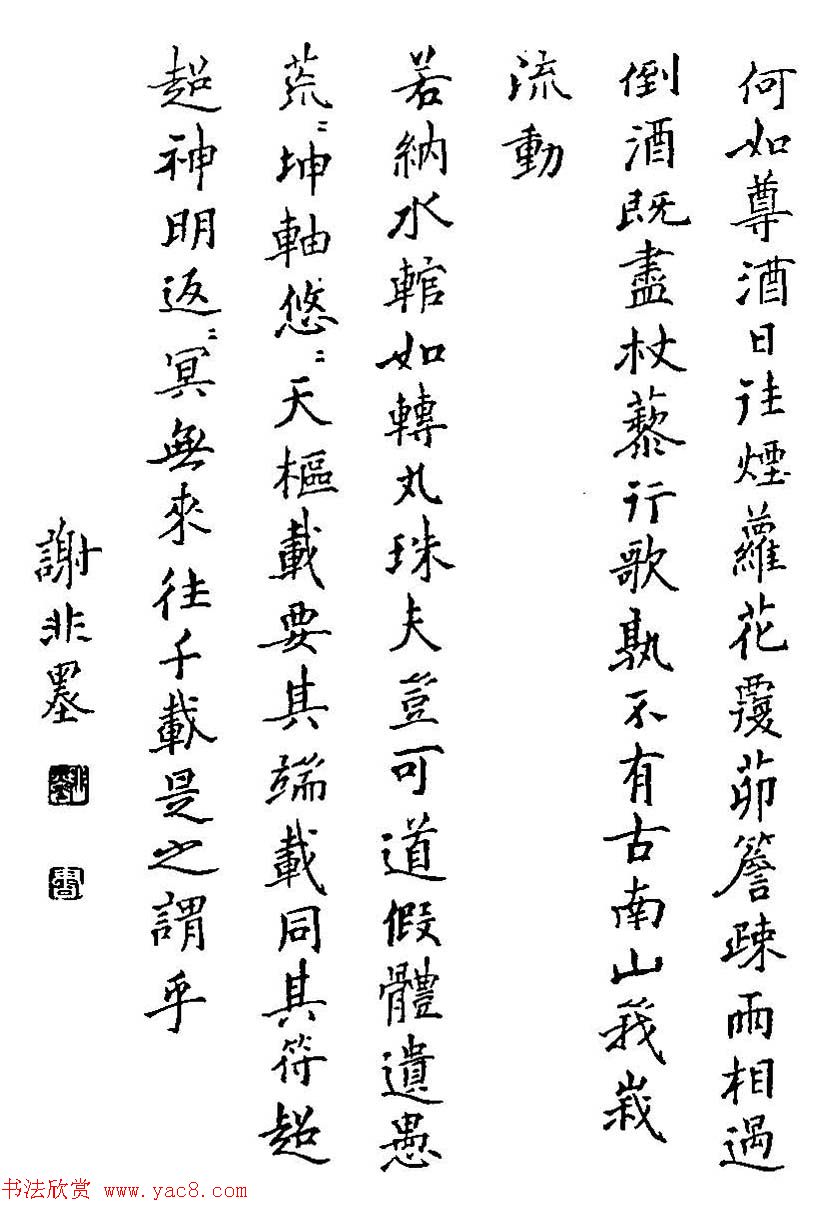 何如尊酒日往煙蘿花覆茆簷疎雨相過
倒酒既盡杖藜行歌孰不有古南山峩峩
流動
若納水輨如轉丸珠夫豈可道假體遺愚
荒〻坤軸悠〻天樞載要其端載同其符超
超神明返〻冥無來往千載是之謂乎
謝非墨
书法欣赏 www.yac8.com